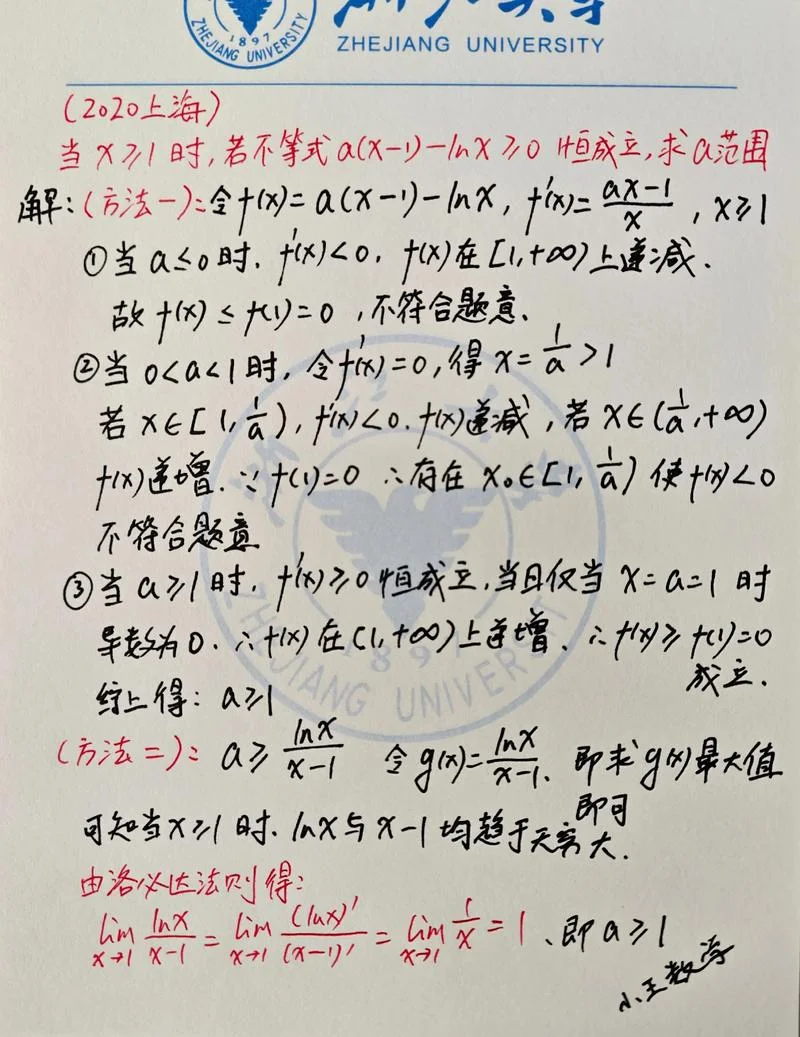 1897
ZHEJIANG UNIVERSITY
ZHEJIANG UNIVERSITY
(2020上海)
当 x≥1 时,若不等式 a(x-1)-lnx≥0 恒成立,求a范围
解:(方法一):令f(x)=a(x-1)-lnx, f'(x)=\frac{ax-1}{x}, x≥1
①当 a≤0 时. f'(x)<0. f(x)在[1,+∞)上递减.
故 f(x)≤f(1)=0 ,不符合题意.
②当 0<a<1 时, 令f'(x)=0,得 x=\frac{1}{a}>1
若 x∈[1,\frac{1}{a}), f'(x)<0. f(x)递减, 若 x∈(\frac{1}{a},+∞)
f(x)递增. ∵ f(1)=0 ∴存在 x₀∈[1,\frac{1}{a}) 使f(x)<0
不符合题意
③当 a≥1 时, f'(x)≥0 恒成立,当且仅当 x=a=1 时
导数为0. ∴f(x)在(1,+∞)上递增. ∴f(x)≥f(1)=0
成立.
综上得: a≥1
(方法二): a≥\frac{lnx}{x-1} 令g(x)=\frac{lnx}{x-1}. 即求g(x)最大值
即可
可知当x≥1 时. lnx与 x-1 均趋于无穷大.
由洛必达法则得:
\lim_{x→1}\frac{lnx}{x-1}=\lim_{x→1}\frac{(lnx)'}{(x-1)'}=\lim_{x→1}\frac{1}{x}=1、即 a≥1
小王数学
1897
ZHEJIANG UNIVERSITY